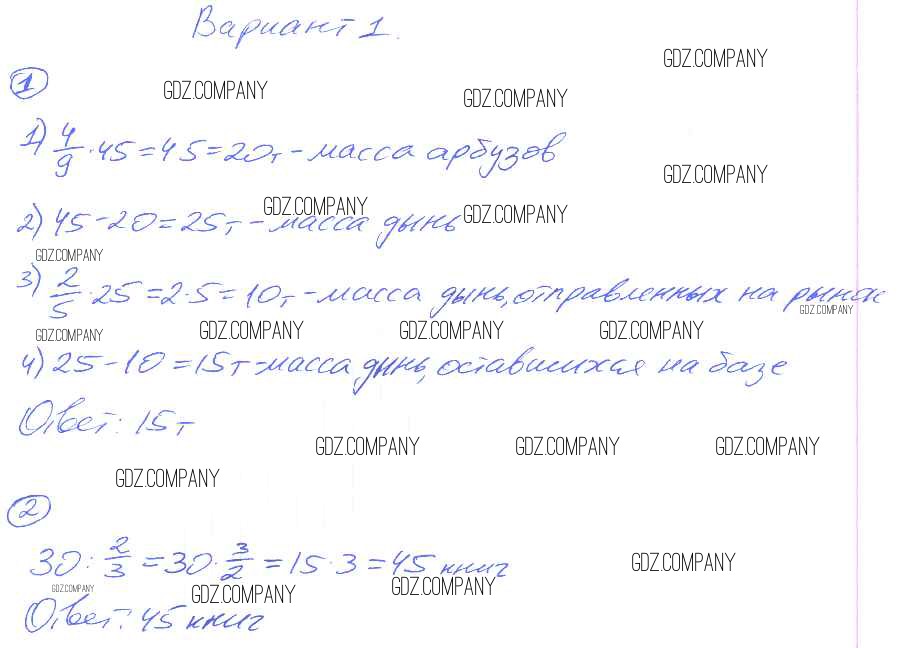 Вариант 1.
GDZ.COMPANY
1
GDZ.COMPANY
GDZ.COMPANY
1) 4/9 · 45 = 4 5 = 20т - масса арбузов
GDZ.COMPANY
GDZ.COMPANY
GDZ.COMPANY
2) 45 - 20 = 25т - масса дынь
GDZ.COMPANY
3) 2/5 · 25 = 2 · 5 = 10т - масса дынь, отправленных на рынок
GDZ.COMPANY
GDZ.COMPANY
GDZ.COMPANY
GDZ.COMPANY
GDZ.COMPANY
4) 25 - 10 = 15т - масса дынь, оставшихся на базе
Ответ: 15т
GDZ.COMPANY
GDZ.COMPANY
GDZ.COMPANY
GDZ.COMPANY
2
30 : 2/3 = 30 · 3/2 = 15 · 3 = 45 книг
GDZ.COMPANY
GDZ.COMPANY
GDZ.COMPANY
GDZ.COMPANY
Ответ: 45 книг